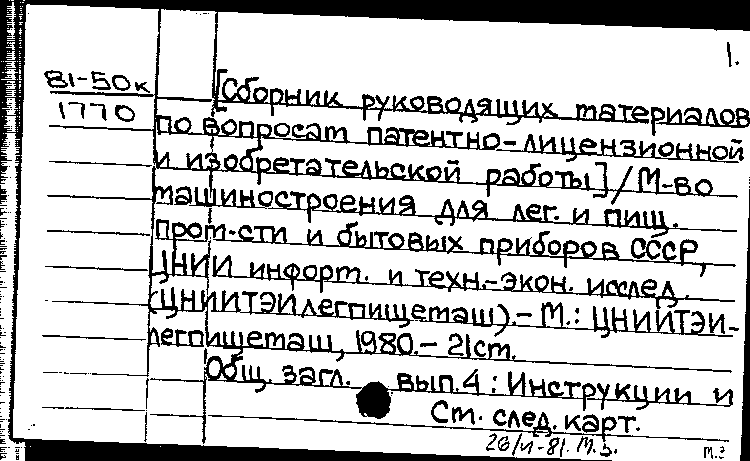 1.
81-50к
1770
[Сборник руководящих материалов
по вопросам патентно-лицензионной
и изобретательской работы] / М-во
машиностроения для лег. и пищ.
пром-сти и бытовых приборов СССР,
ЦНИИ информ. и техн.-экон. исслед.
(ЦНИИТЭИлегпищемаш).- М.: ЦНИИТЭИ-
легпищемаш, 1980.- 21 см.
Общ. загл. вып.4: Инструкции и
См. след. карт.